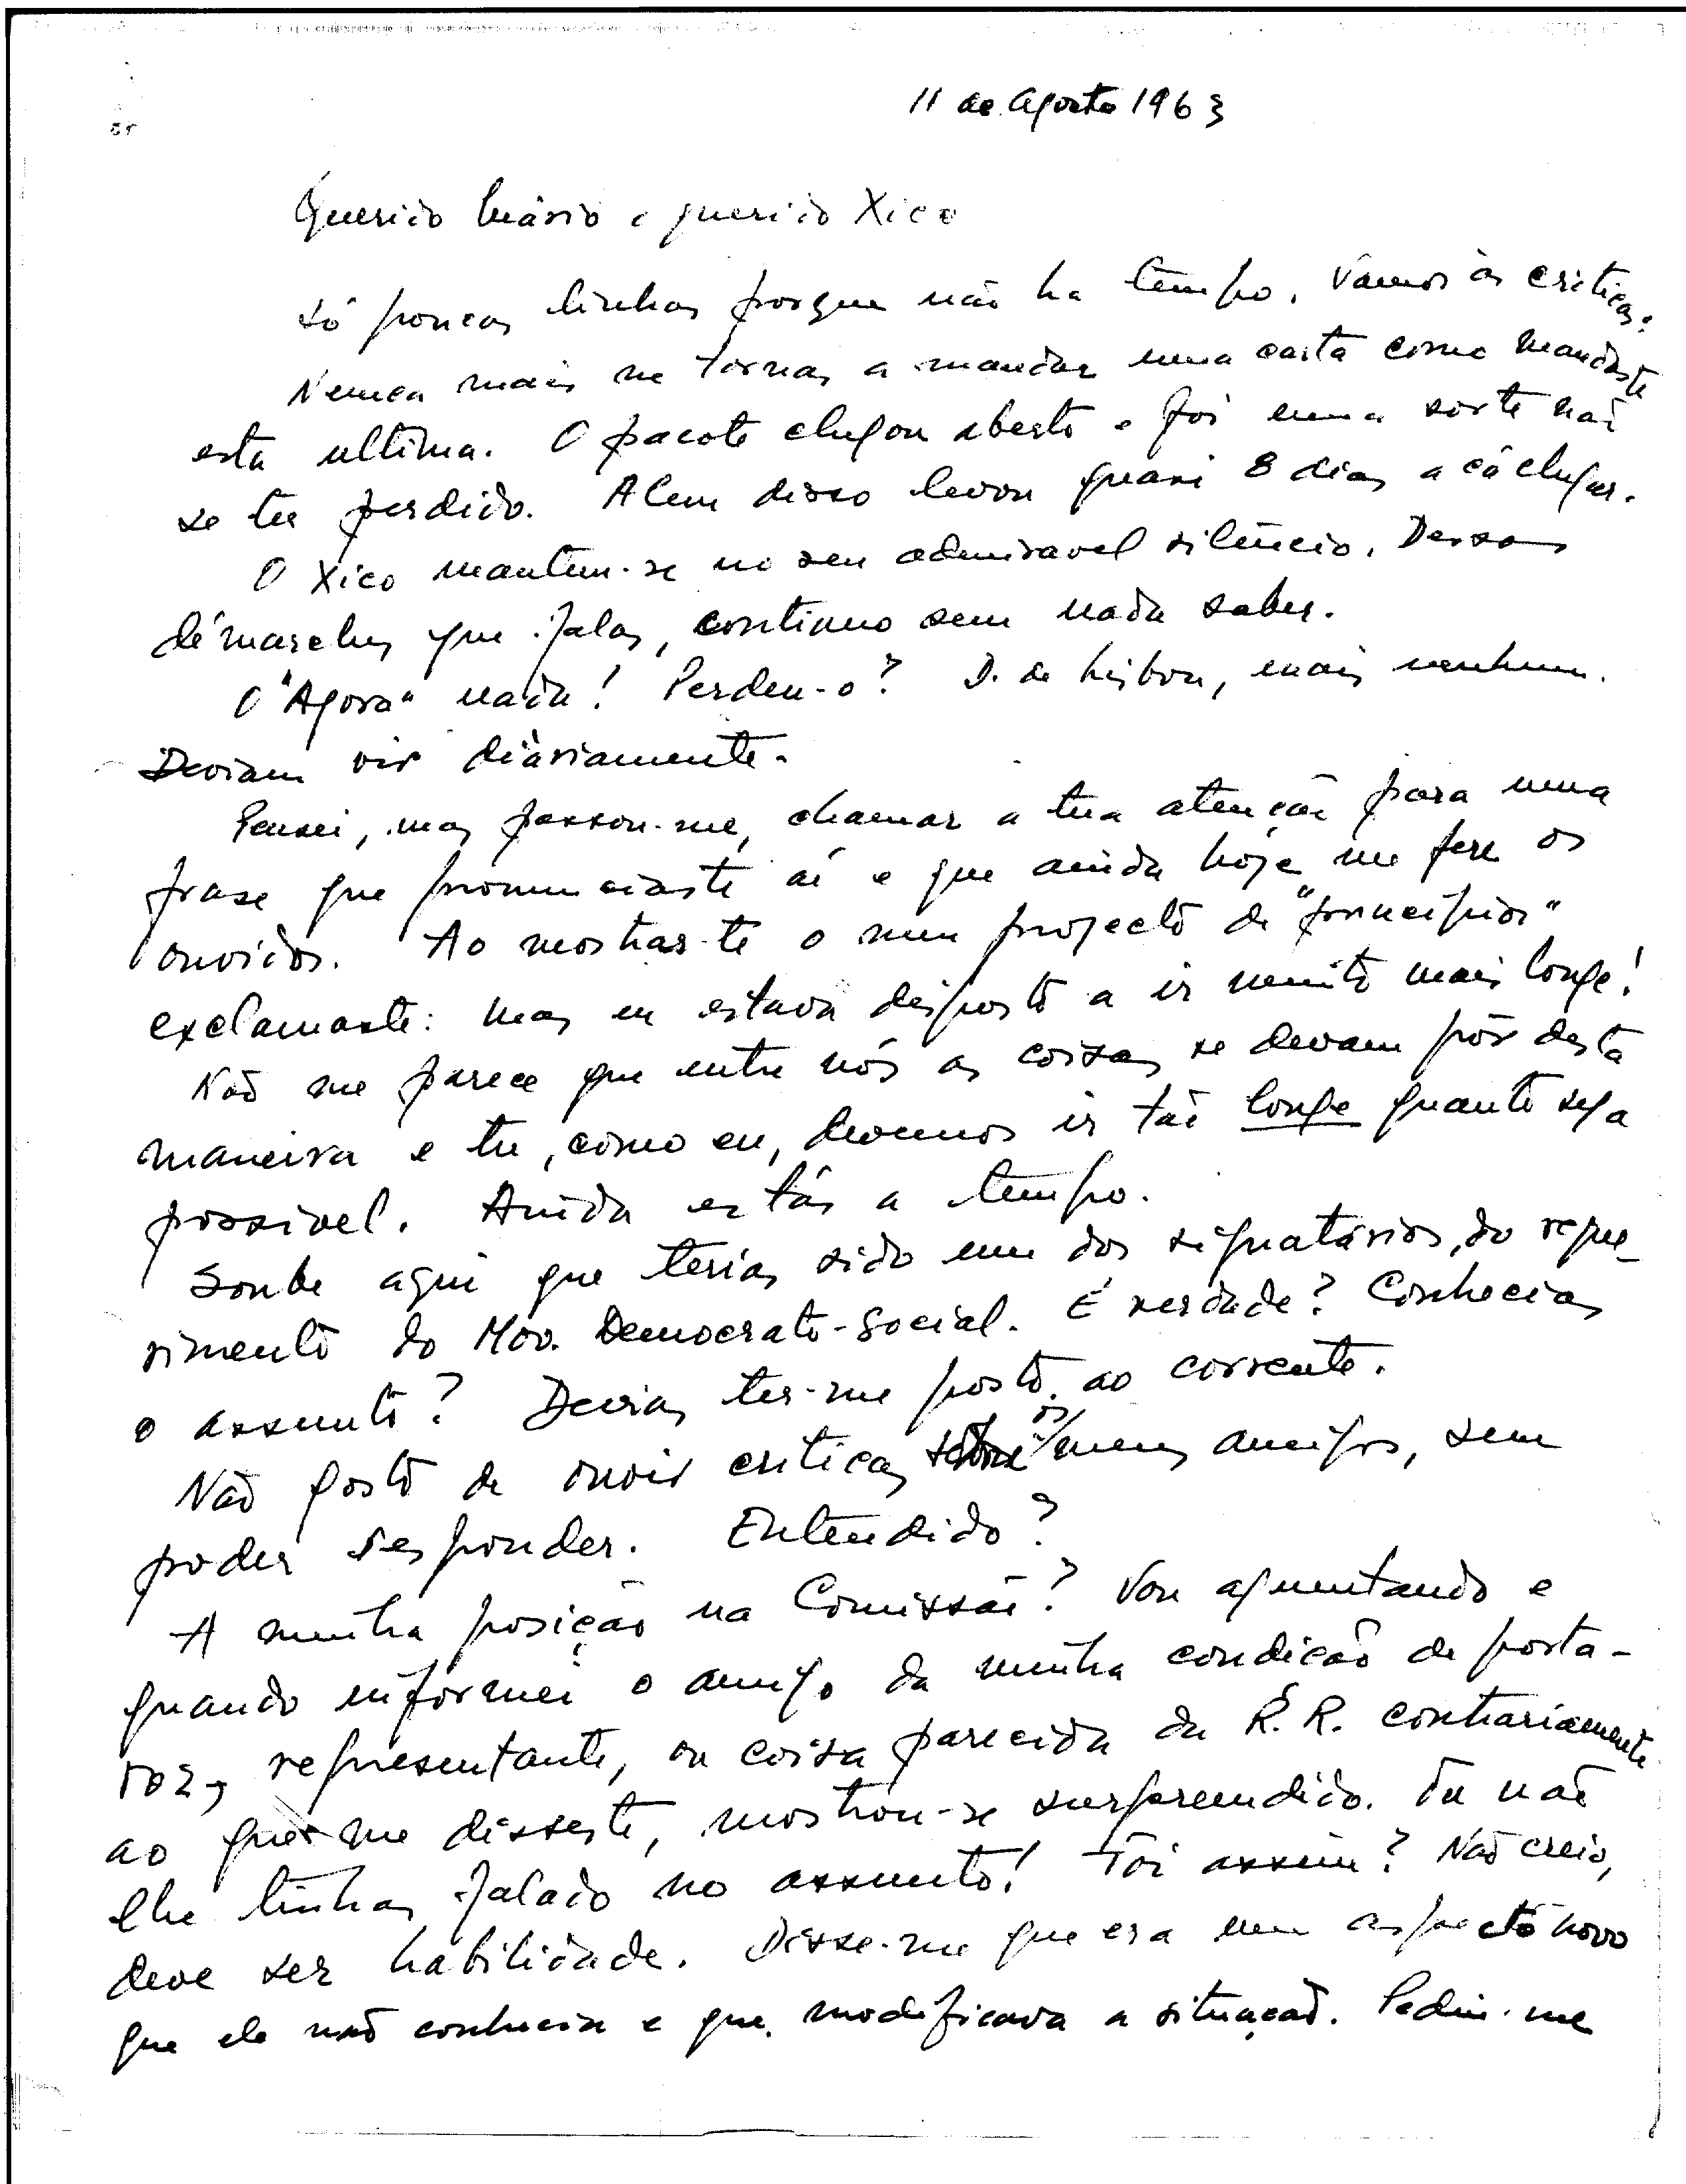 11 de Agosto 1963
Querido Mário e querido Xico
Só poucas linhas porque não ha tempo. Vamos às criticas:
Nunca mais me tornas a mandar uma carta como mandaste
esta ultima. O pacote chegou aberto e foi uma sorte não
se ter perdido. Alem disso levou quasi 8 dias a cá chegar.
O Xico mantem-se no seu admiravel silêncio. Dessas
démarches que falas, continuo sem nada saber.
O "Agora" nada! Perdeu-o? D. de Lisboa, mais nenhum.
Deviam vir diàriamente.
Pensei, mas passou-me, chamar a tua atenção para uma
frase que pronunciaste aí e que ainda hoje me fere os
ouvidos. Ao mostrar-te o meu projecto de "principios"
exclamaste: mas eu estava disposto a ir muito mais longe!
Não me parece que entre nós as coisas se devam pôr desta
maneira e tu, como eu, devemos ir tão longe quanto seja
possivel. Ainda estás a tempo.
Soube aqui que terias sido um dos signatários, do reque-
rimento do Mov. Democrato-Social. É verdade? Conhecias
o assunto? Devias ter-me posto ao corrente.
Não gosto de ouvir criticas sobre os meus amigos, sem
poder responder. Entendido?
A minha posição na Comissão? Vou aguentando e
quando informei o amigo da minha condição de porta-
voz, representante, ou coisa parecida da R. R. contrariamente
ao que me disseste, mostrou-se surpreendido. Tu não
lhe tinhas falado no assunto! Foi assim? Não creio,
deve ser habilidade. Disse-me que era um aspecto novo
que ele não conhecia e que modificava a situação. Pediu-me